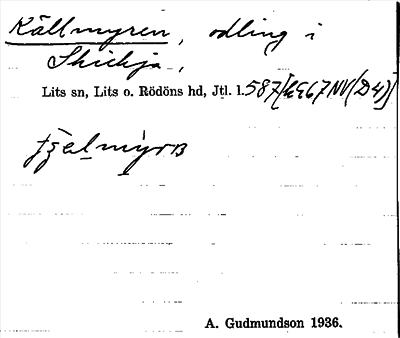 Källmyren, odling i
Skickja,
Lits sn, Lits o. Rödöns hd, Jtl. l. 587[h967NV(D4)]
A. Gudmundson 1936.